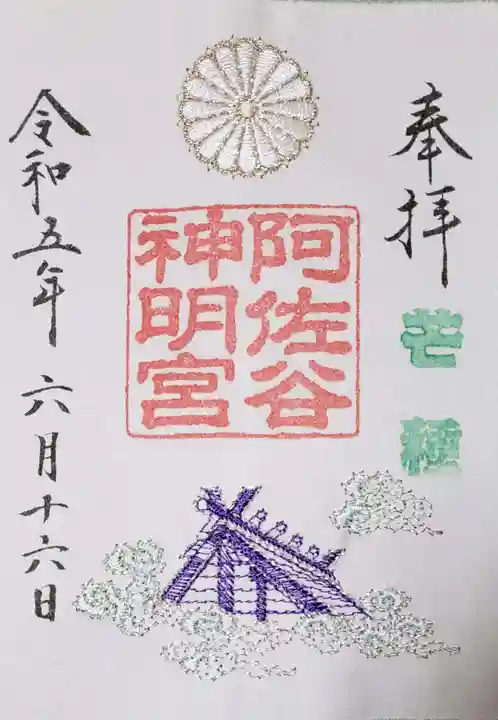 奉拝
芒種
阿佐谷
神明宮
令和五年六月十六日